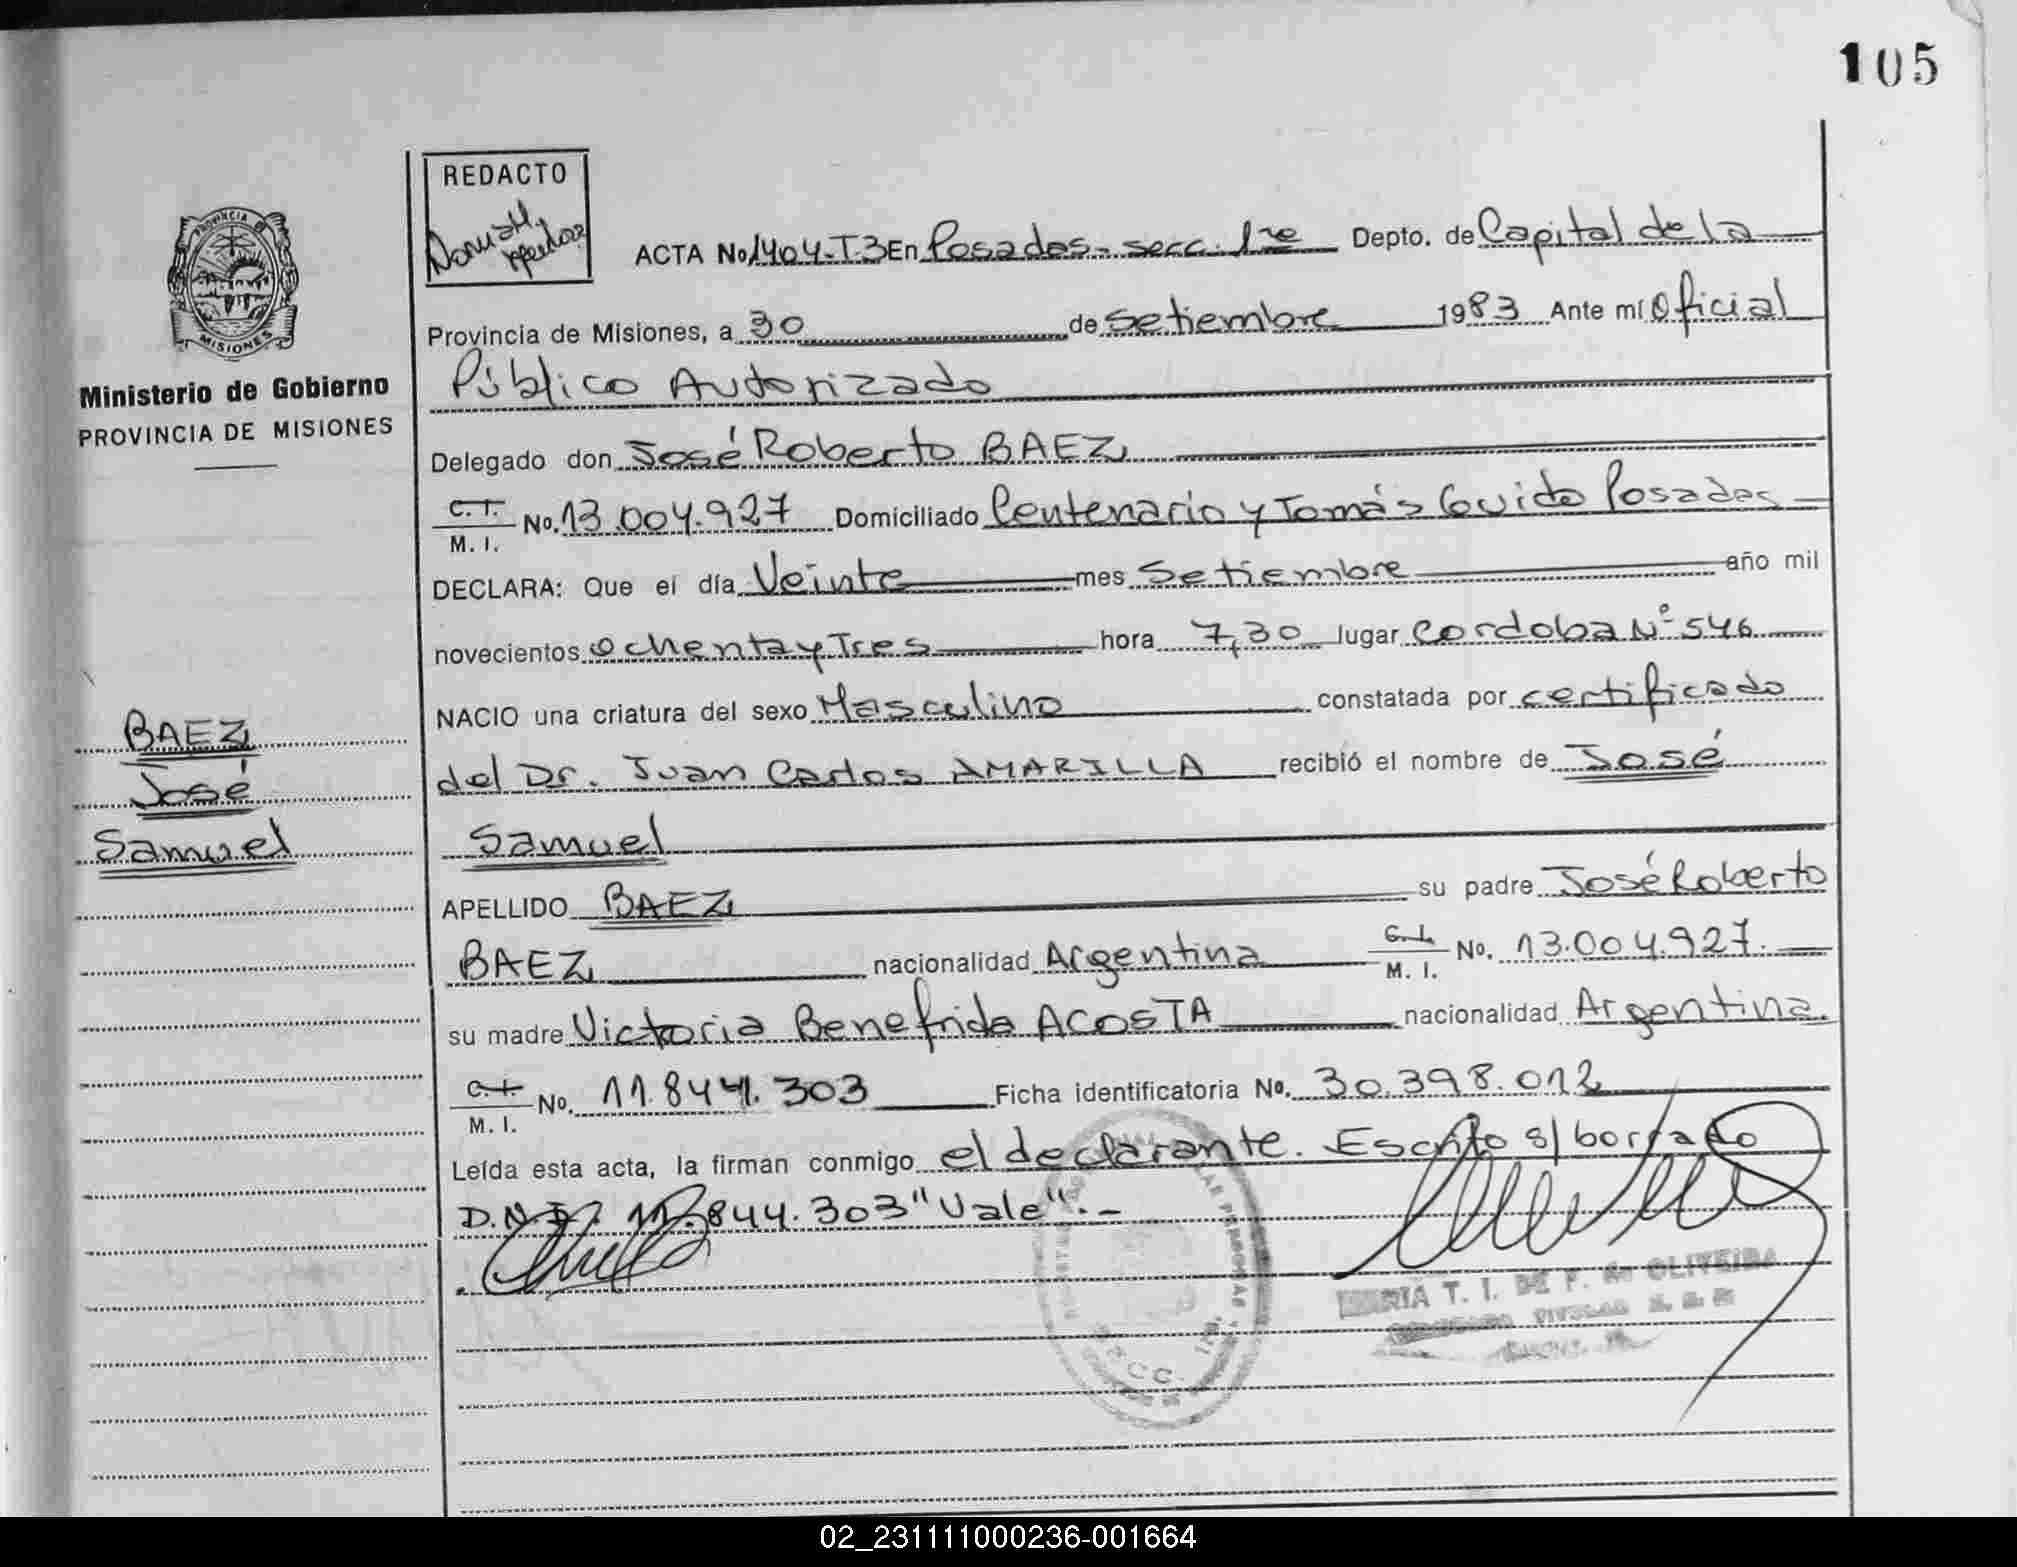 105
REDACTO
PROVINCIA
MISIONES
Ministerio de Gobierno
PROVINCIA DE MISIONES
ACTA No 1404-T3 En Posadas - secc. 1ra Depto. de Capital de la
Provincia de Misiones, a 30 de Setiembre 1983 Ante mí Oficial
Público Autorizado
Delegado don José Roberto BAEZ
C. I. M. I. No. 13.004.927 Domiciliado Centenario y Tomás Guido Posadas
DECLARA: Que el día Veinte mes Setiembre año mil
novecientos ochenta y Tres hora 7,30 lugar Cordoba Nº 546
NACIO una criatura del sexo Masculino constatada por certificado
del Dr. Juan Carlos AMARILLA recibió el nombre de José
Samuel
BAEZ
José
Samuel
APELLIDO BAEZ su padre José Roberto
BAEZ nacionalidad Argentina C. I. M. I. No. 13.004.927.
su madre Victoria Benefrida ACOSTA nacionalidad Argentina.
C. I. M. I. No. 11.844.303 Ficha identificatoria No. 30.398.012
Leída esta acta, la firman conmigo el declarante. Escrito s/ borrado
D.N.I. 11.844.303 "Vale".-
MARIA T. I. DE F. de OLIVEIRA
02_231111000236-001664